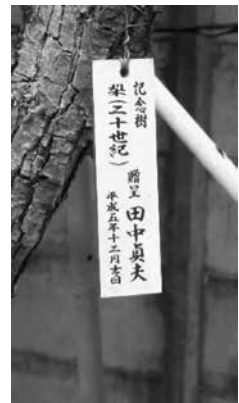 記念樹
梨(二十世紀)
贈呈 田中眞夫
平成五年十二月吉日